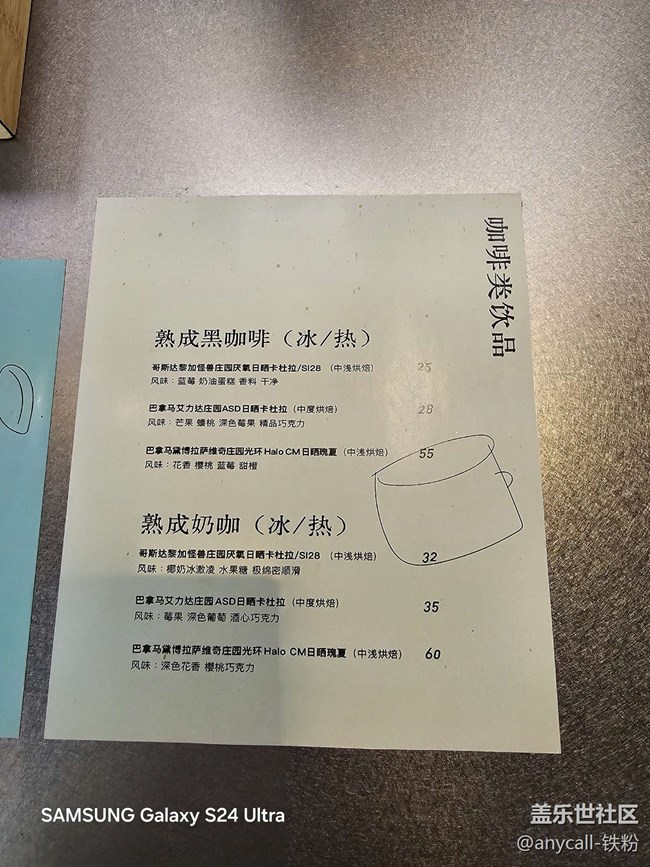 咖啡类饮品
熟成黑咖啡（冰/热）
哥斯达黎加怪兽庄园厌氧日晒卡杜拉/Sl28 （中浅烘焙） 25
风味：蓝莓 奶油蛋糕 香料 干净
巴拿马艾力达庄园ASD日晒卡杜拉（中度烘焙） 28
风味：芒果 蟠桃 深色莓果 精品巧克力
巴拿马黛博拉萨维奇庄园光环Halo CM日晒瑰夏（中浅烘焙） 55
风味：花香 樱桃 蓝莓 甜橙
熟成奶咖（冰/热）
哥斯达黎加怪兽庄园厌氧日晒卡杜拉/Sl28 （中浅烘焙） 32
风味：椰奶冰激凌 水果糖 极绵密顺滑
巴拿马艾力达庄园ASD日晒卡杜拉（中度烘焙） 35
风味：莓果 深色葡萄 酒心巧克力
巴拿马黛博拉萨维奇庄园光环Halo CM日晒瑰夏（中浅烘焙） 60
风味：深色花香 樱桃巧克力
SAMSUNG Galaxy S24 Ultra
盖乐世社区
@anycall-铁粉